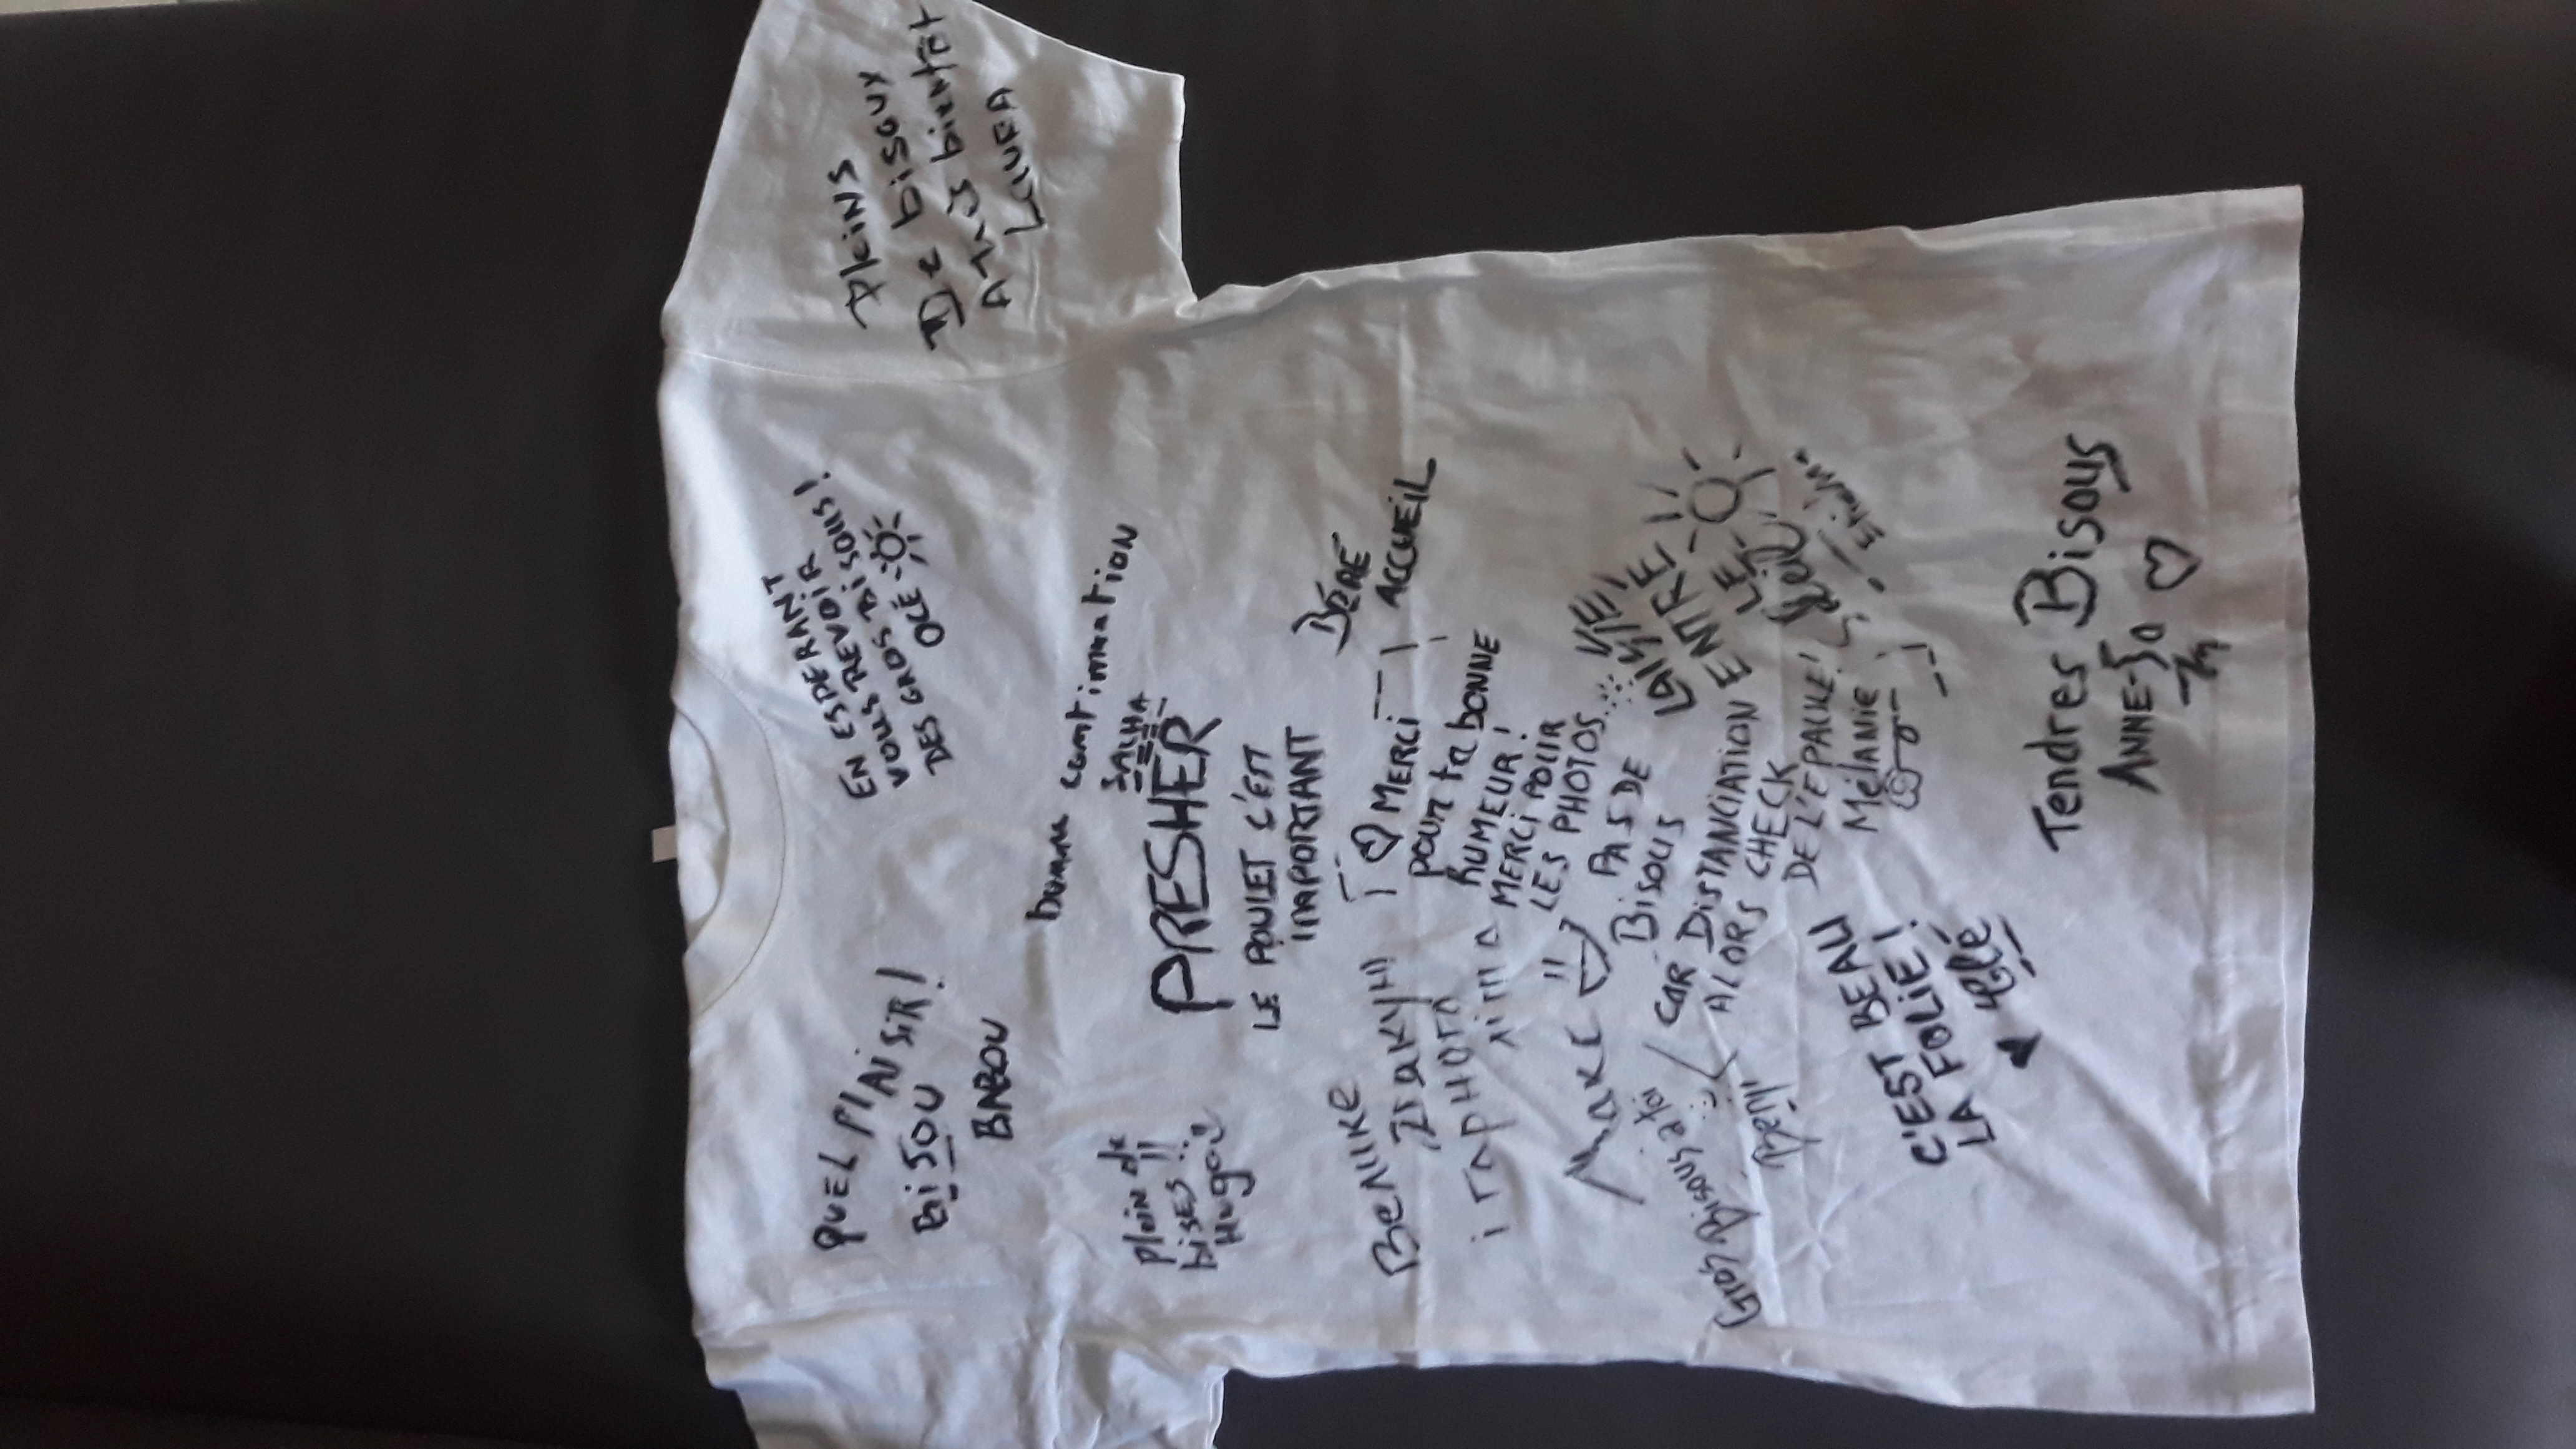 QUEL PLAiSiR!
BiSOU
BABOU
EN ESPERANT
VOUS REVOiR
DES GROS BiSOUS!
OCÉ
PLeiNS
De bisoux
bientôt
LAURA
bonne continuation
SALHA
Plein de
biSES !!
Hugo
PRESHER
LE POULET C'EST
IMPORTANT
BÉRÉ
ACCUEIL
Велике
Дякую
і гарного
літа
Макс
MERCi
pour ta bONNE
HUMEUR!
MERCi POUR
LES PHOTOS...
PAS DE
BiSOUS
CAR DiSTANCiATION
ALORS CHECK
DE L'EPAULE!
MéLANiE
Gros Bisous à toi
Benji
LAISSE
ENTRE
LE
Soleil
C'EST BEAU
LA FOLiE!
Clé
Tendres Bisous
ANNE-So